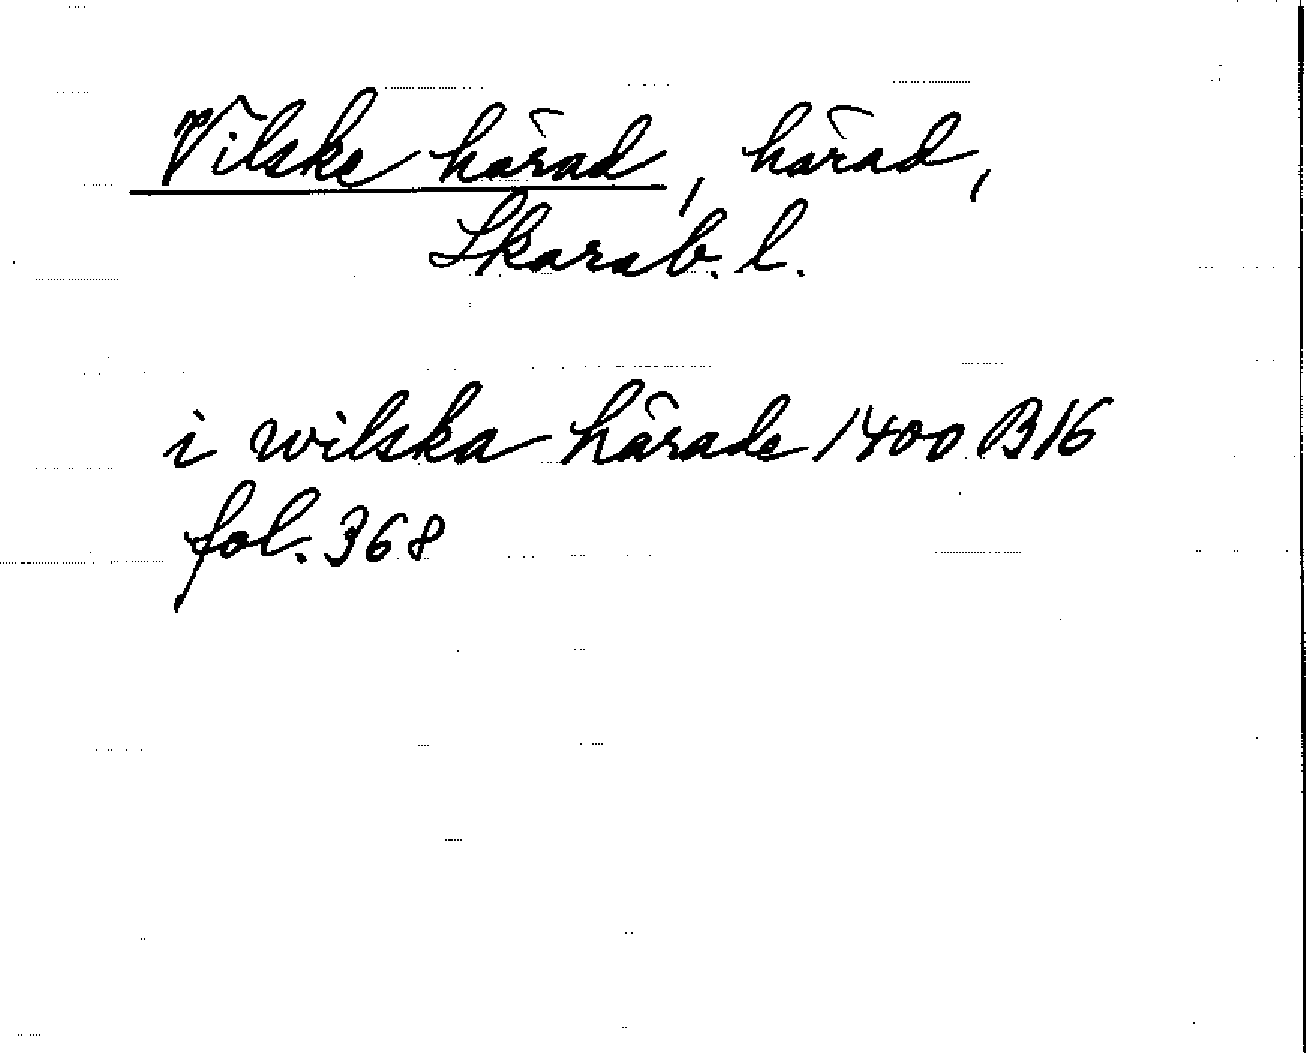 Vilske härad, härad,
Skarab. l.
i wilska härade 1400 B16
fol. 368